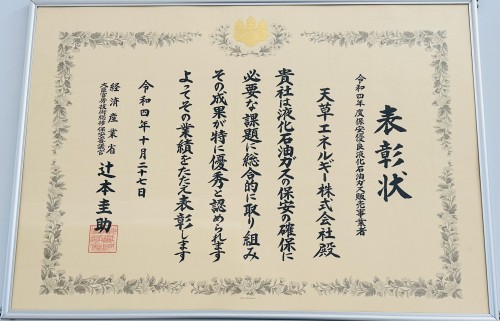 表彰状
令和四年度保安優良液化石油ガス販売事業者
天草エネルギー株式会社殿
貴社は液化石油ガスの保安の確保に
必要な課題に総合的に取り組み
その成果が特に優秀と認められます
よってその業績をたたえ表彰します
令和四年十月二十七日
経済産業省
大臣官房技術総括・保安審議官
辻本圭助